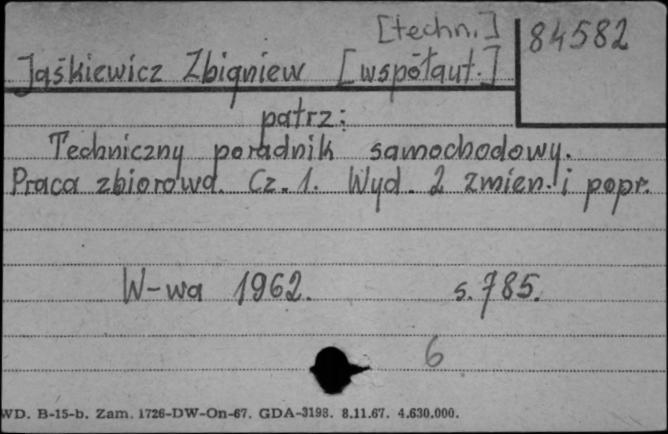 [techn.]
84582
Jaśkiewicz Zbigniew [współaut.]
patrz:
Techniczny poradnik samochodowy.
Praca zbiorowa. Cz. 1. Wyd. 2 zmien. i popr.
W-wa 1962. s. 785.
6
WD. B-15-b. Zam. 1726-DW-On-67. GDA-3198. 8.11.67. 4.630.000.